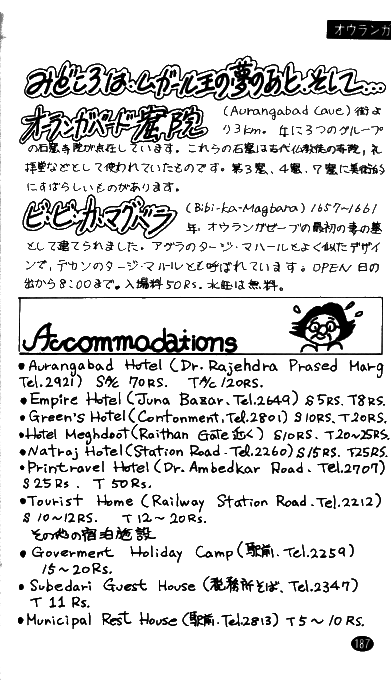 オウランガ
みどころは、ムガール王の夢のあと、そして…
オーランガバード窟院 (Aurangabad Cave) 街よ
り3km。 年に3つのグループ
の石窟寺院が点在しています。これらの石窟は古代仏教徒の寺院、礼
拝堂などとして使われていたものです。第3窟、4窟、7窟に美術的
にすばらしいものがあります。
ビ・ビ・カ・マグバラ (Bibi-ka-Magbara) 1657~1661
年、オウランガゼーブの最初の妻の墓
として建てられました。アグラのタージ・マハールとよく似たデザイ
ンで、デカンのタージ・マハルとも呼ばれています。OPEN 日の
出から8:00まで。入場料50RS. 水曜は無料。
Accommodations
•Aurangabad Hotel (Dr. Rajehdra Prased Marg
Tel.2921) S A/c 70RS. T A/c 120RS.
•Empire Hotel (Juna Bazar. Tel.2649) S 5RS. T8RS.
•Green's Hotel (Contonment, Tel.2801) S 10RS. T20RS.
•Hotel Meghdoot (Raithan Gate 近く) S10RS. T20~25RS.
•Natraj Hotel (Station Road. Tel.2260) S15RS. T25RS.
•Printravel Hotel (Dr. Ambedkar Road. Tel.2707)
S25Rs. T50Rs.
•Tourist Home (Railway Station Road. Tel.2212)
S 10~12RS. T 12~20Rs.
その他の宿泊施設
• Goverment Holiday Camp (駅前. Tel.2259)
15~20Rs.
• Subedari Guest House (税務所そば、Tel.2347)
T 11 Rs.
•Municipal Rest House (駅前. Tel.2813) T5~10RS.
187